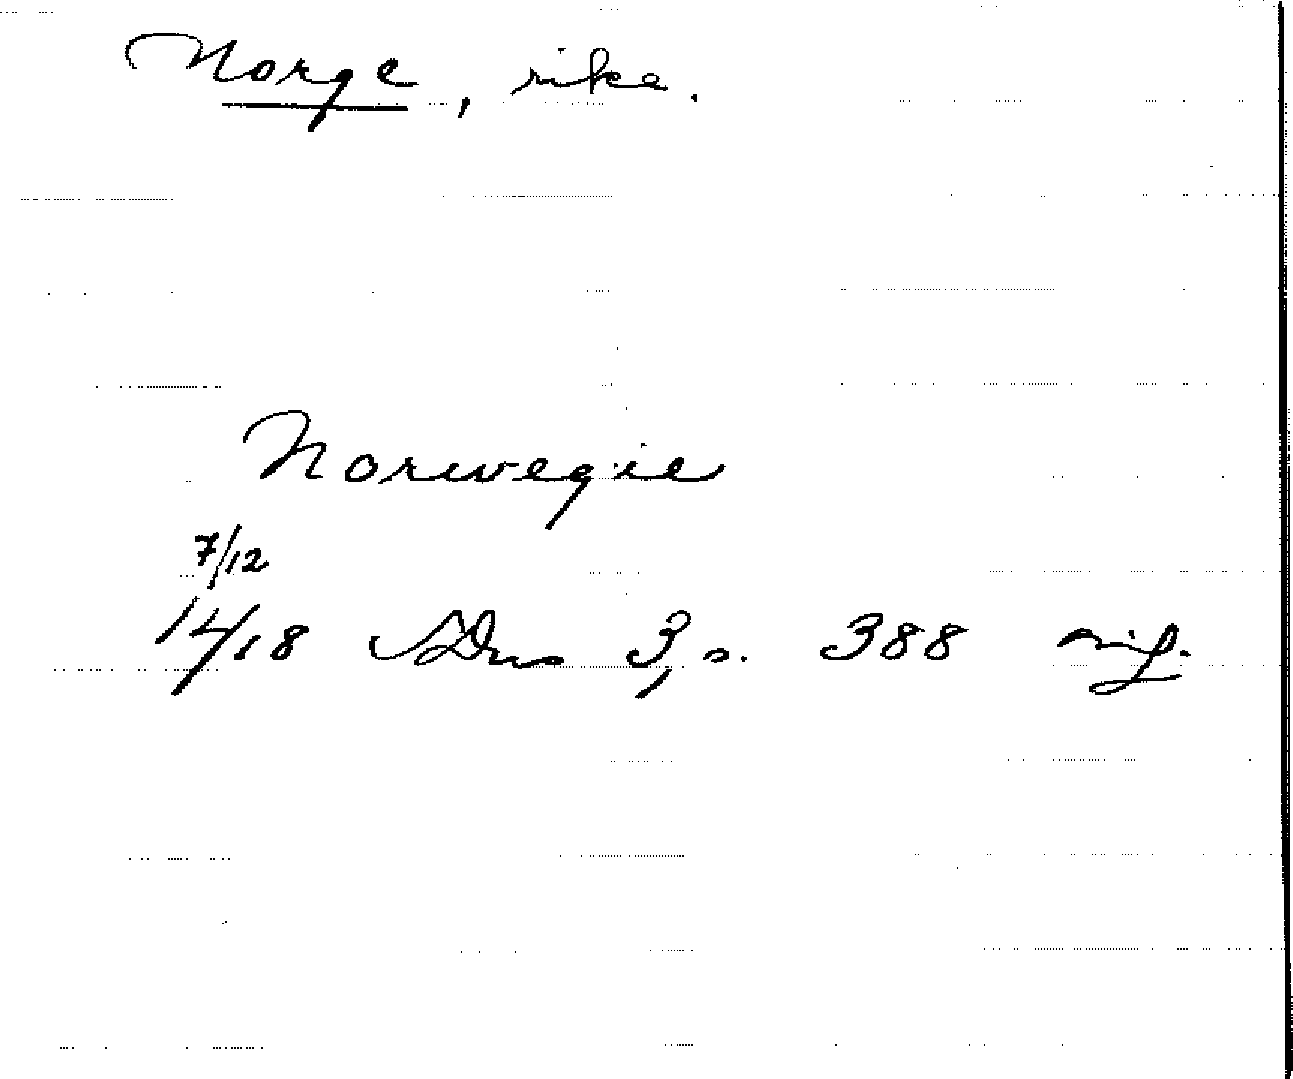 Norge, rike.
Norwegie
7/12
1418 SDns 3, s. 388 nif.